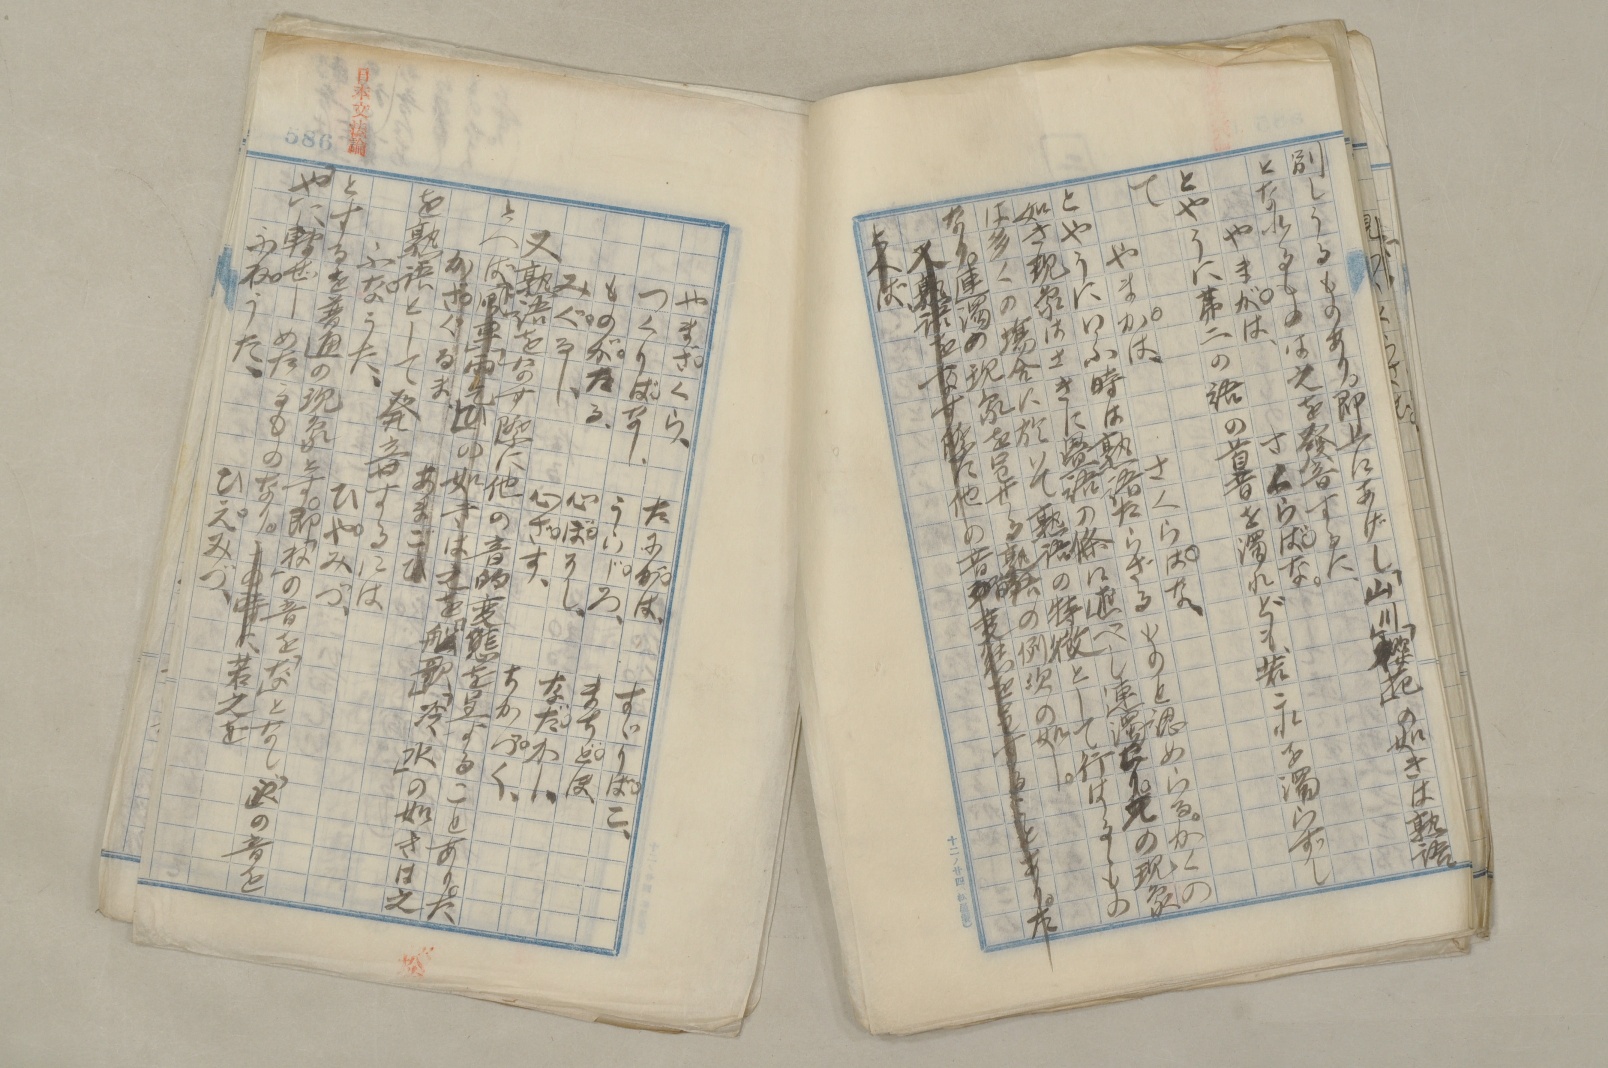 別しうるものあり。即上にあげし「山川」「櫻花」の如きは熟語
となれるものは之を發音するに、
やまがは、 さくらばな。
とやうに第二の語の首音を濁れども、若これを濁らずし
て
やまかは、 さくらはな、
とやうにいふ時は熟語たらざるものと認めらる。かくの
如き現象はさきに畳語の條に述べし連濁なり。この現象
は多くの場合に於いて熟語の特徴として行はるるもの
なり。連濁の現象を呈せる熟語の例次の如し。
又熟語をなす際に他の音の変態を呈することあり。た
とへば
日本文法論
586
やまざくら、 たにがは、 すゞりばこ、
つくりばなし、 うらじろ、 まちどほ
ものがたる、 心ぼそし、 なだかし、
みぐるし、 心ざす、 ちかづく、
又熟語をなす際に他の音的変態を呈することあり。た
とへば「風車」「雨乞」の如きは之を
かざぐるま、 あまごひ
を熟語として発音するには
ふなうた、 ひやみづ、
とするを普通の現象とす。即「ね」の音を「な」となし「え」の音を
「や」に轉ぜしめたるものなり。若之を
ふねうた、 ひえみづ、